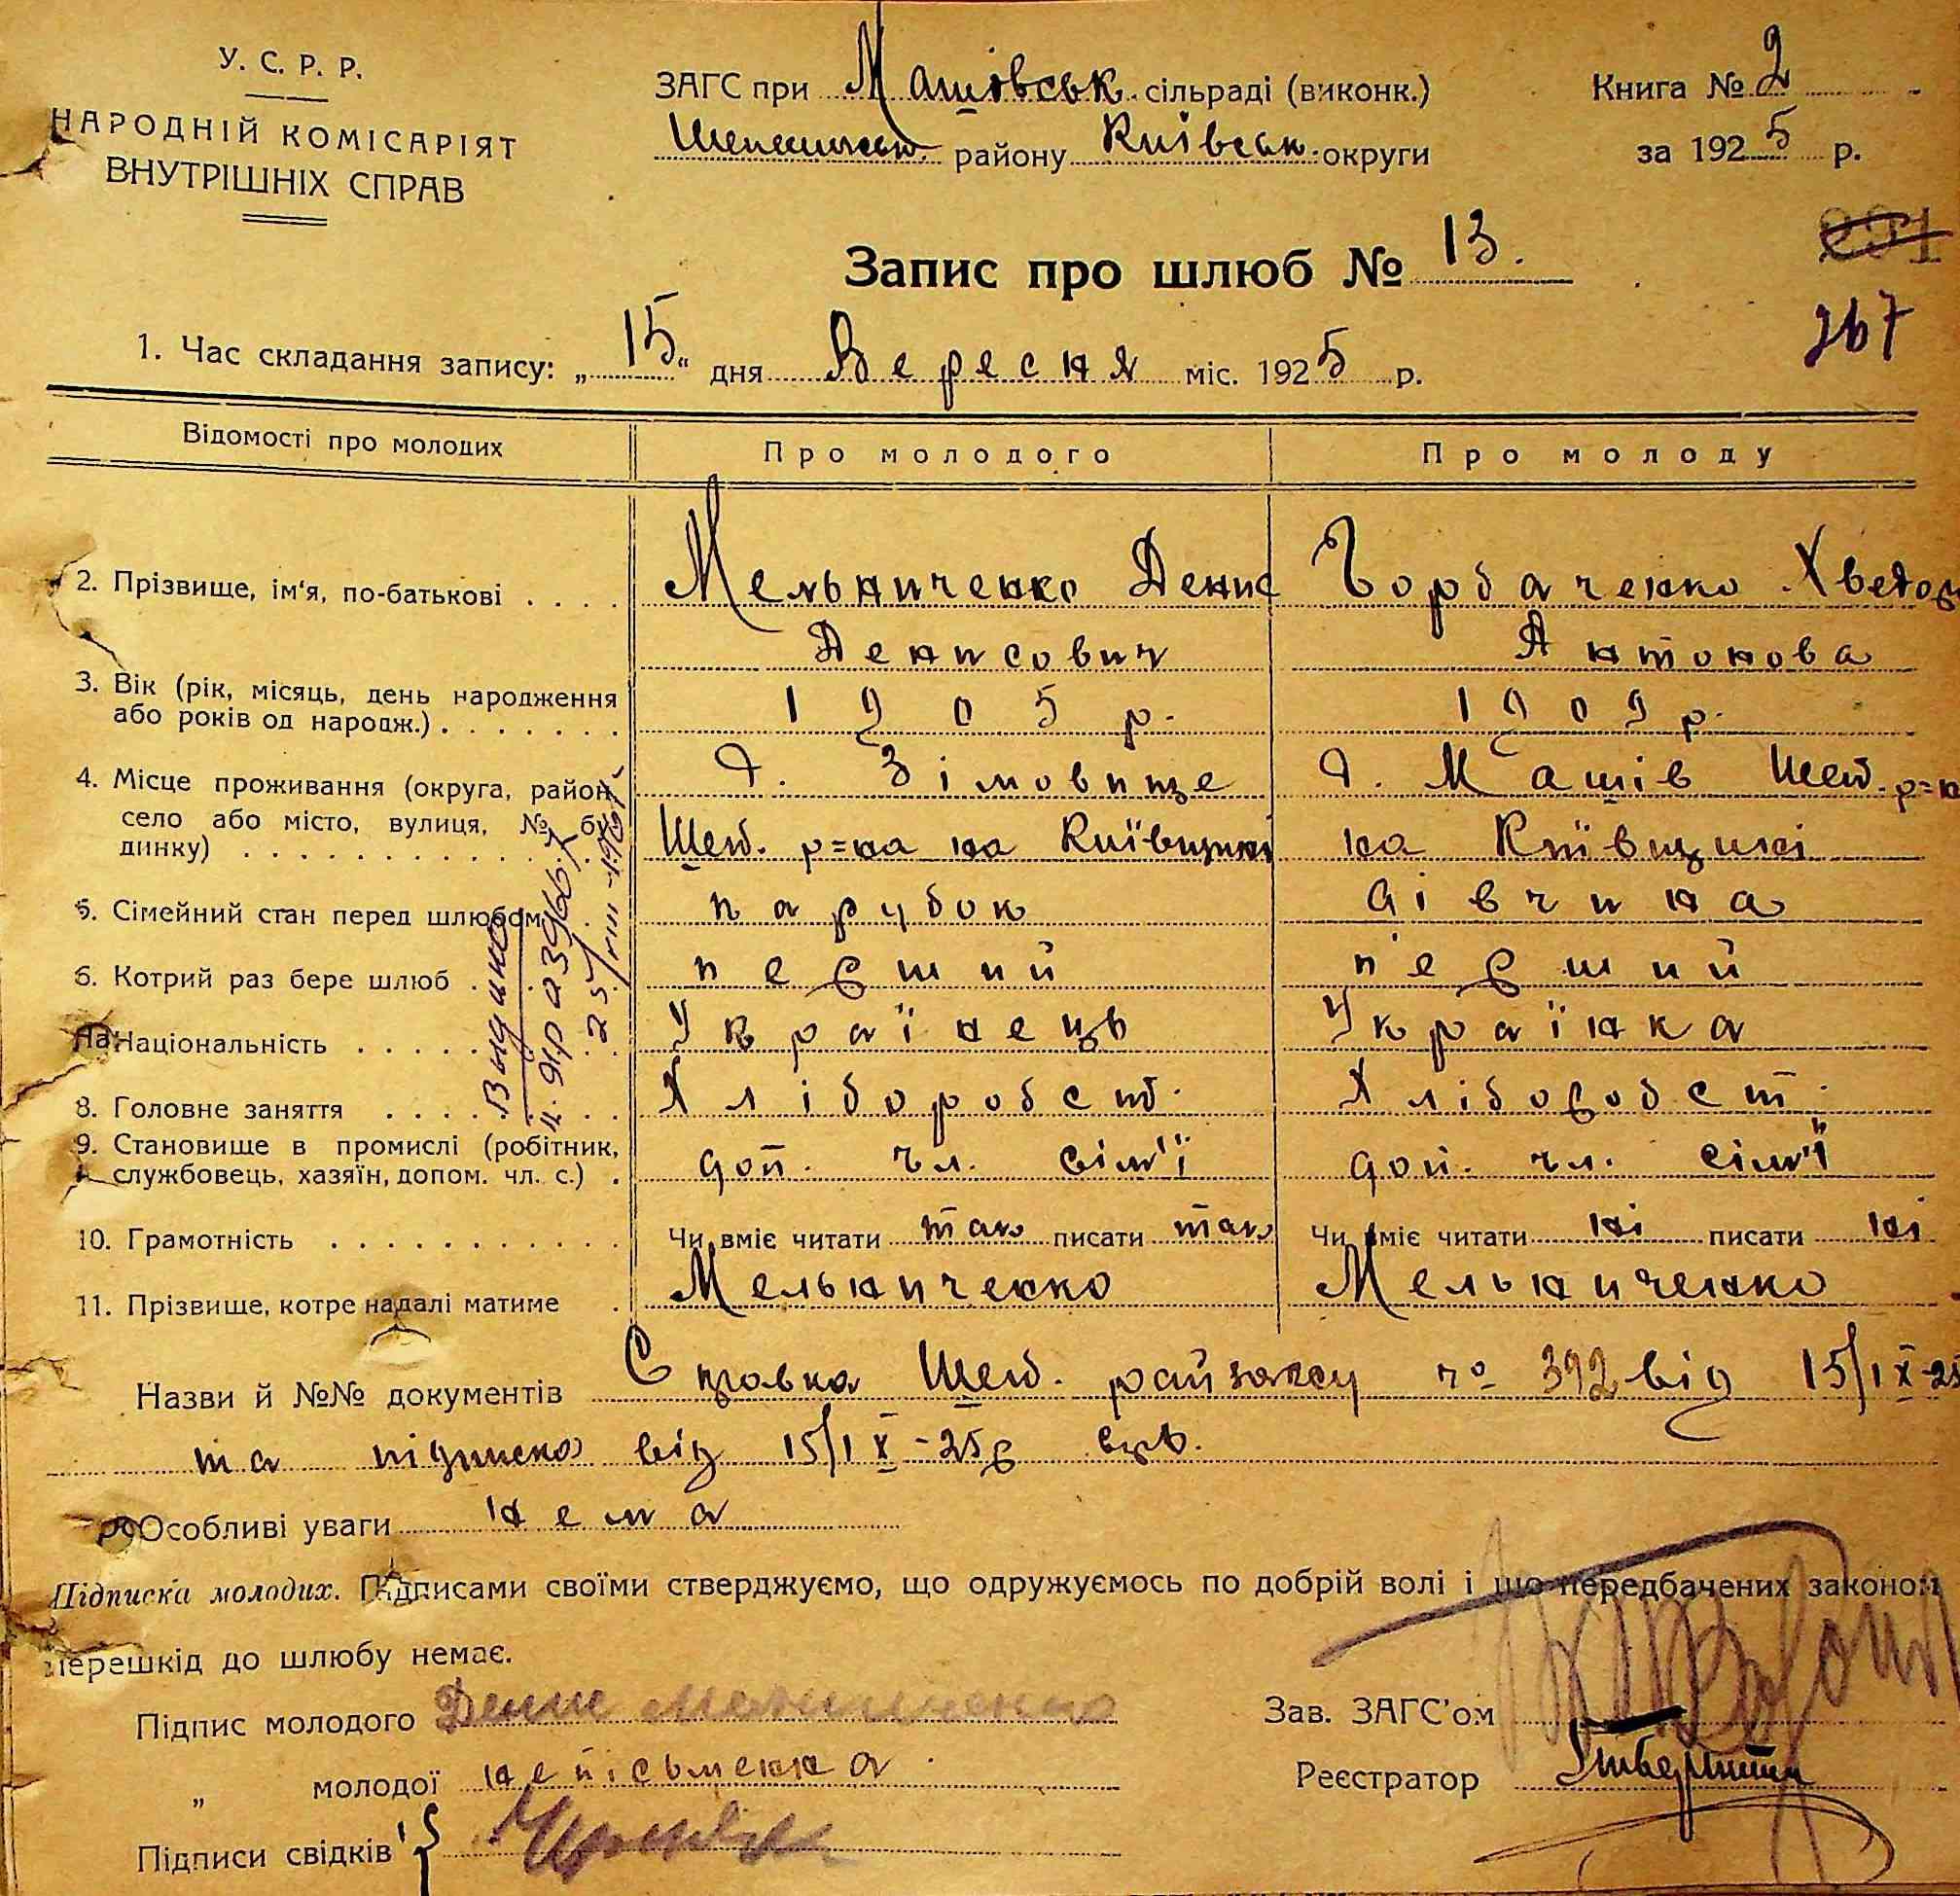 У. С. Р. Р.
НАРОДНІЙ КОМІСАРІЯТ
ВНУТРІШНІХ СПРАВ
ЗАГС при Машівськ. сільраді (виконк.)
району Київськ. округи
Книга № 2
за 1925 р.
Запис про шлюб № 13.
291
267
1. Час складання запису: „15“ дня Вересня міс. 1925 р.
Відомості про молодих
Про молодого
Про молоду
2. Прізвище, ім'я, по-батькові . . . .
Мельниченко Денис
Денисович
Горбаченко Хведор
Антонова
3. Вік (рік, місяць, день народження
або років од народж.) . . . . . . .
1905 р.
1909 р.
4. Місце проживання (округа, район,
село або місто, вулиця, № бу-
динку) . . . . . . . . . . . . .
д. Зімовище
Шеп. р=на на Київщині
д. Машів Шеп. р=н
на Київщині
5. Сімейний стан перед шлюбом
парубок
дівчина
6. Котрий раз бере шлюб . .
перший
перший
Національність . . . . .
Українець
Українка
8. Головне заняття . . . .
Хліборобст.
Хліборобст.
9. Становище в промислі (робітник,
службовець, хазяїн, допом. чл. с.) .
доп. чл. сім'ї
доп. чл. сім'ї
10. Грамотність . . . . . . . . . . .
Чи вміє читати так писати так
Чи вміє читати ні писати ні
11. Прізвище, котре надалі матиме .
Мельниченко
Мельниченко
Назви й №№ документів Справка Шеп. райзагсу № 392 від 15/IX-25
та підписка від 15/IX-25р
Особливі уваги нема
Підписка молодих. Підписами своїми стверджуємо, що одружуємось по добрій волі і що передбачених законом
перешкід до шлюбу немає.
Підпис молодого Денис Мельниченко
„ молодої неписьменна
Підписи свідків
Зав. ЗАГС'ом
Реєстратор